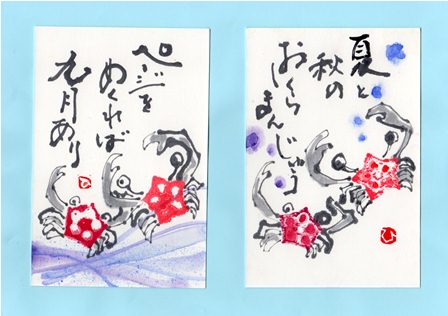 ページを
めくれば
九月あり
ひ
夏と
秋の
おしくら
まんじゅう
ひ